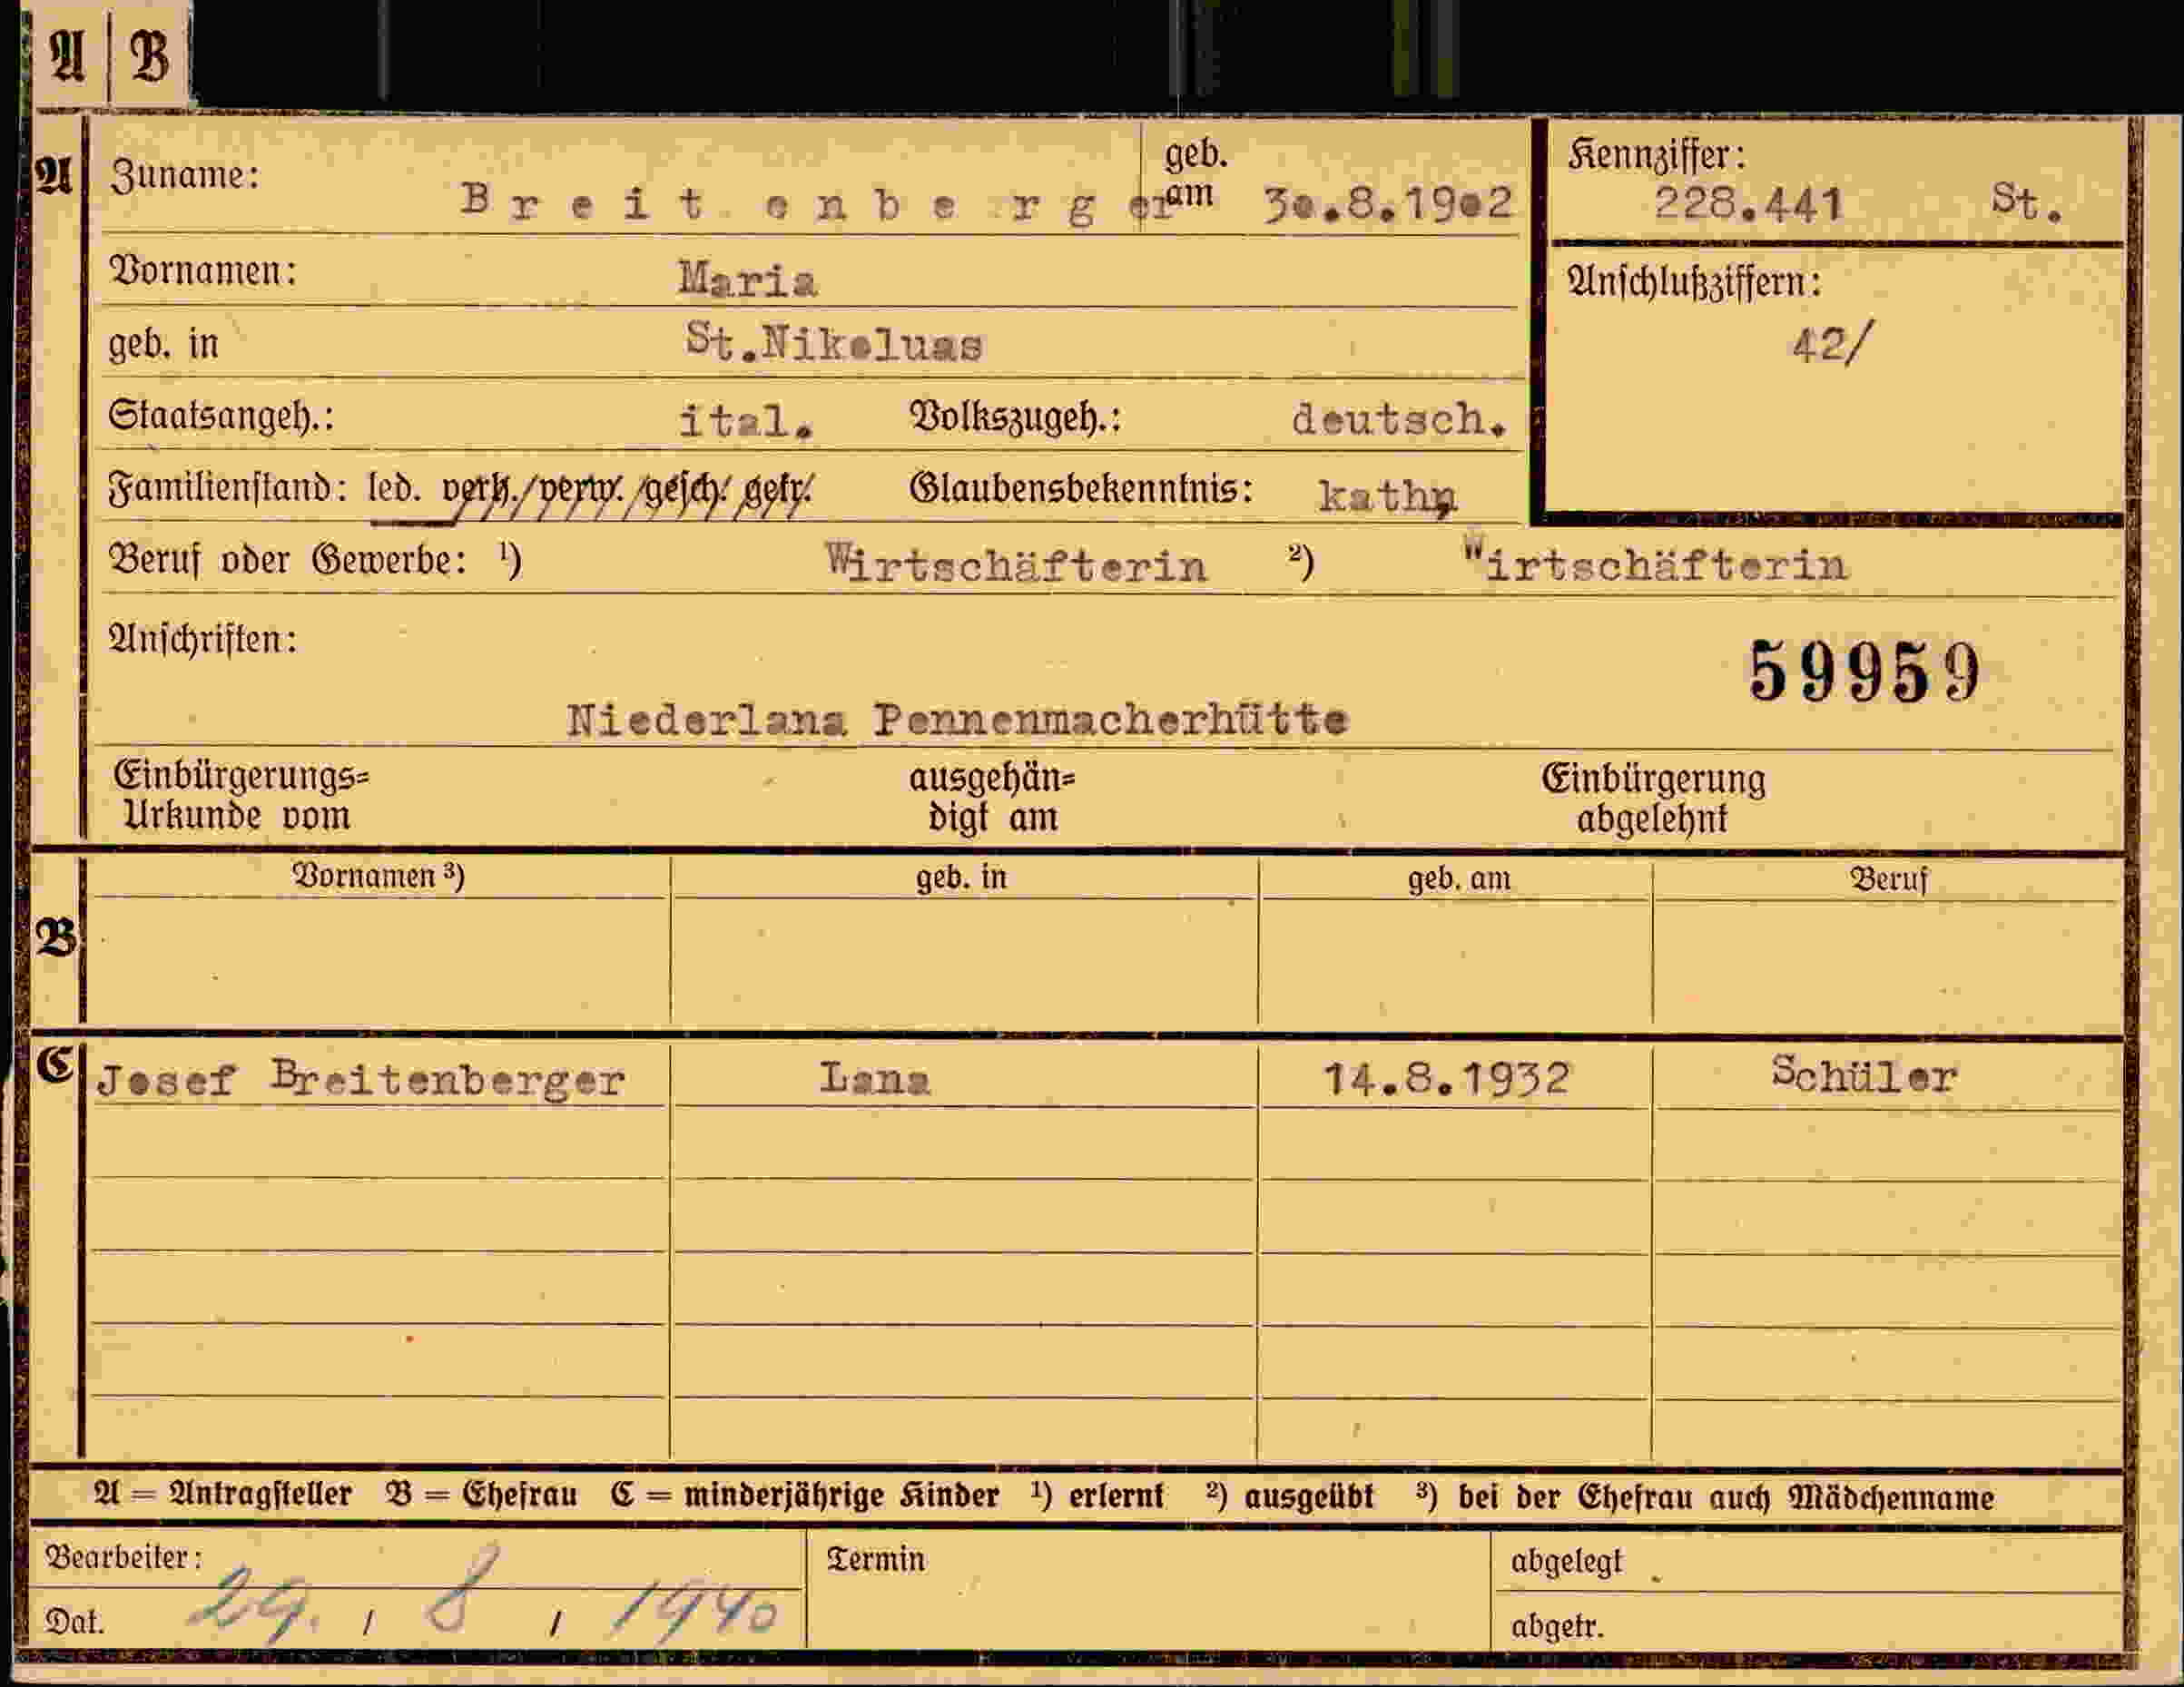 A B
A Zuname: Breitenberger geb. am 30.8.1902 Kennziffer: 228.441 St.
Vornamen: Maria Anschlußziffern:
geb. in St.Nikoluas 42/
Staatsangeh.: ital. Volkszugeh.: deutsch.
Familienstand: led. verh./verw./gesch./getr. Glaubensbekenntnis: kath.
Beruf oder Gewerbe: ¹) Wirtschäfterin ²) Wirtschäfterin
Anschriften: 59959
Niederlana Pennenmacherhütte
Einbürgerungs= ausgehän= Einbürgerung
Urkunde vom digt am abgelehnt
Vornamen ³) geb. in geb. am Beruf
B
C Josef Breitenberger Lana 14.8.1932 Schüler
A = Antragsteller B = Ehefrau C = minderjährige Kinder ¹) erlernt ²) ausgeübt ³) bei der Ehefrau auch Mädchenname
Bearbeiter: Termin abgelegt
Dat. 29. / 8 / 1940 abgetr.